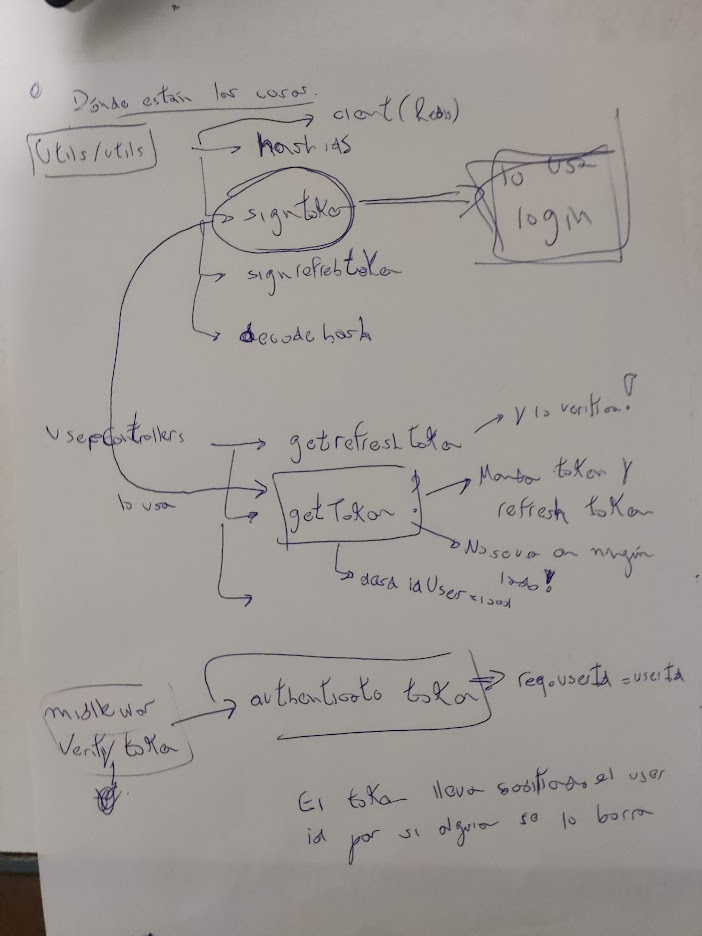 Dónde están las cosas.
client (Redis)
Utils/utils
hash ids
signtoken
lo usa
login
signrefreshtoken
decode hash
y lo verifica!
UserControllers
getrefresh token
lo usa
getToken !
Manda token y
refresh token
No se usa en ningún
lado!
idUser
middlewar
Verify token
authenticate token
req.userId = userId
El token lleva el user
id por si alguien se lo borra